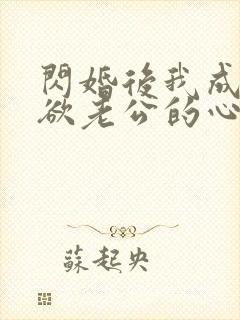 閃婚後我成
欲老公的心
蘇起央